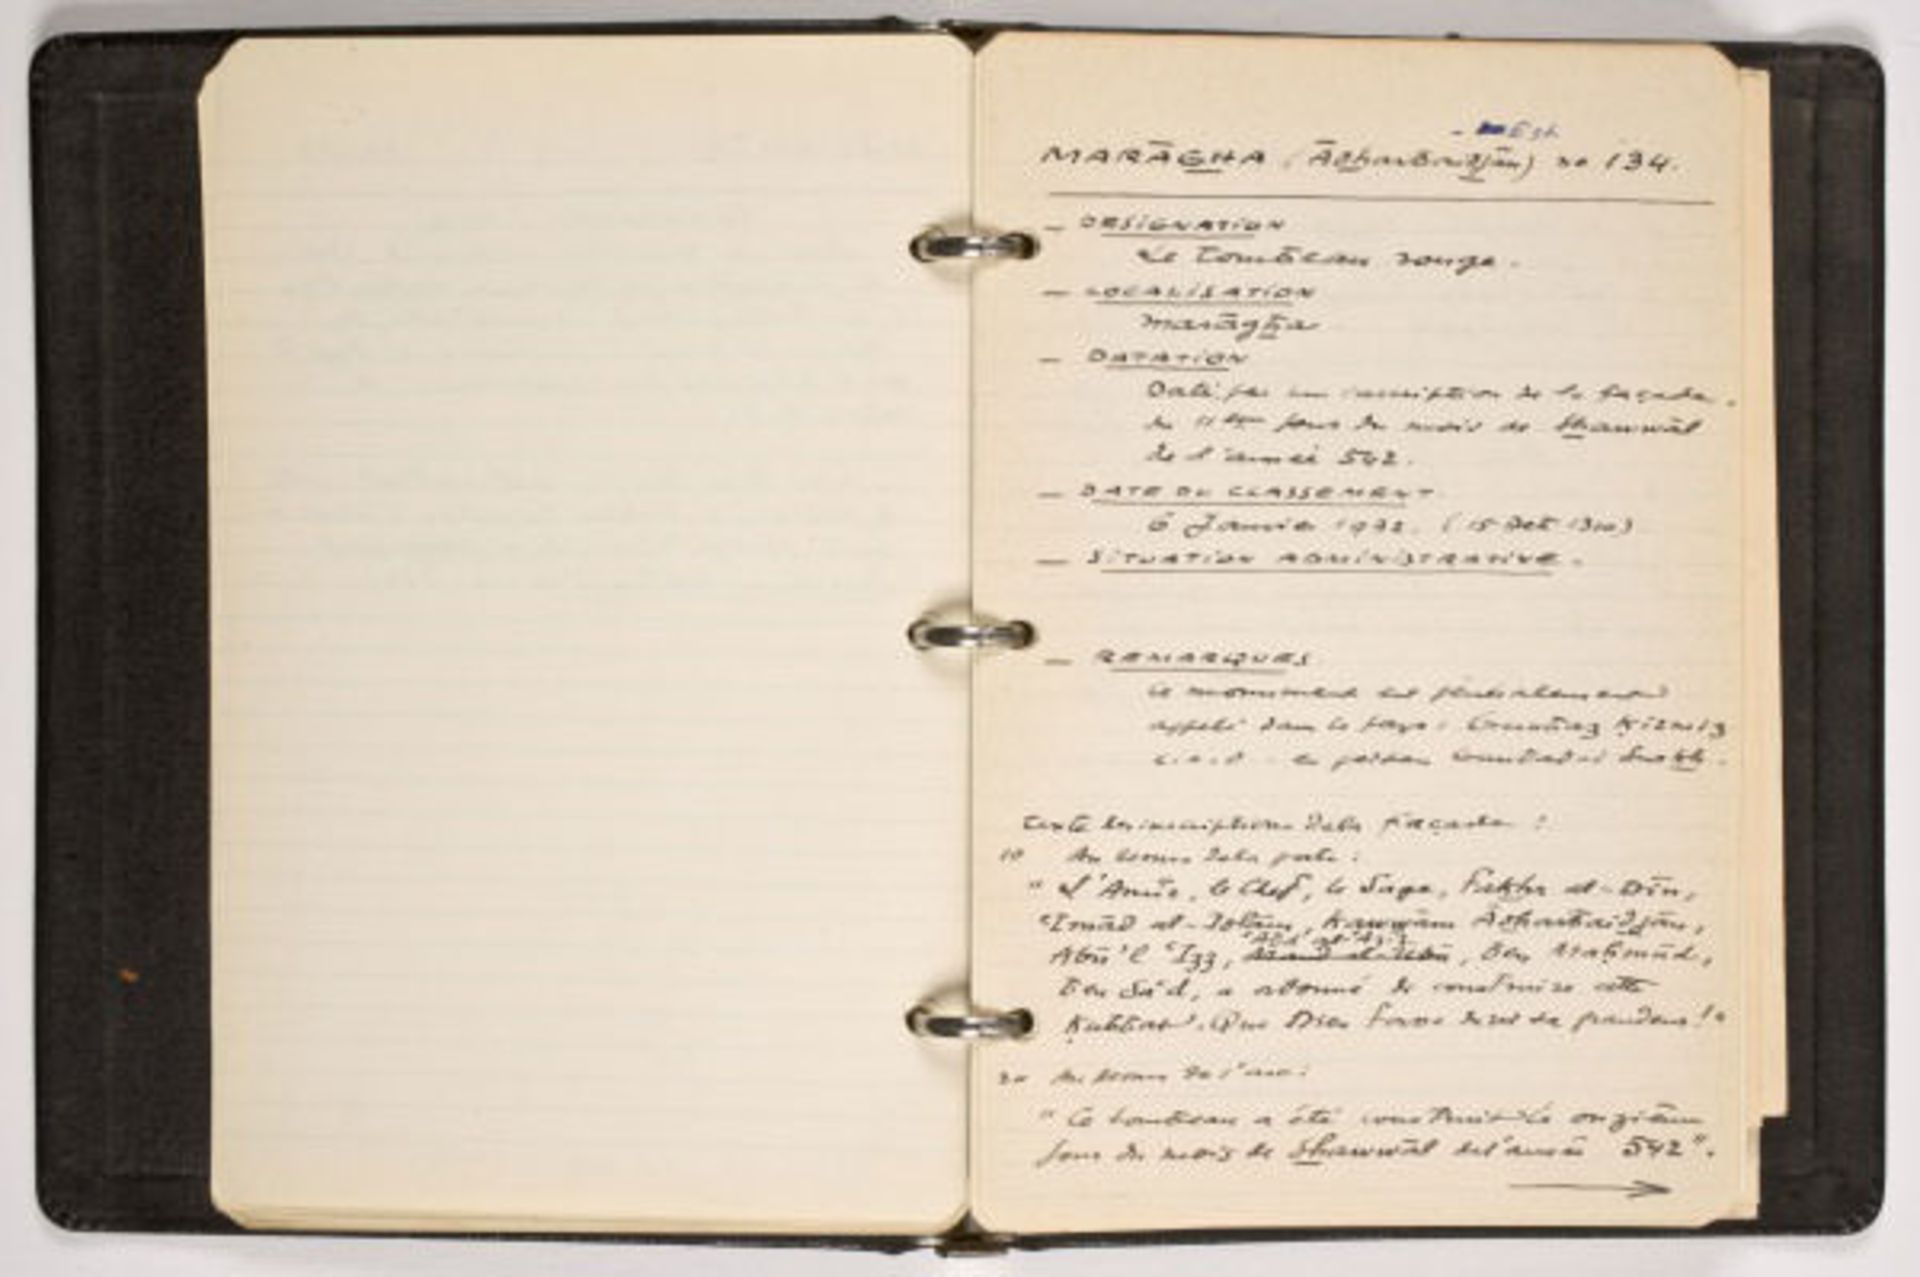 - Est
MARĀGHA (Ādharbaidjān) no 134.
— DESIGNATION
Le Tombeau rouge.
— LOCALISATION
Marāgha
— DATATION
Daté par une inscription de la façade,
du 11ème jour du mois de Shawwāl
de l'année 542.
— DATE DU CLASSEMENT
6 Janvier 1932. (15 Deï 1310)
— SITUATION ADMINISTRATIVE.
— REMARQUES
Ce monument est généralement
appelé dans le pays: Kirmiz
c.à.d. en persan Gunbad-i Surkh.
Texte des inscriptions de la façade:
1° Au dessus de la porte:
"L'Amir, le Chef, le Sage, Fakhr al-Dīn,
'Imād al-Islām, Kawwām Ādharbaidjān,
'Abd al-'Azīz
Abū'l 'Izz, ben Mahmūd,
ben Sa'd, a ordonné de construire cette
Kubbat. Que Dieu fasse durer sa grandeur!"
2° Au dessus de l'arc:
"Ce tombeau a été construit le onzième
jour du mois de Shawwāl de l'année 542".